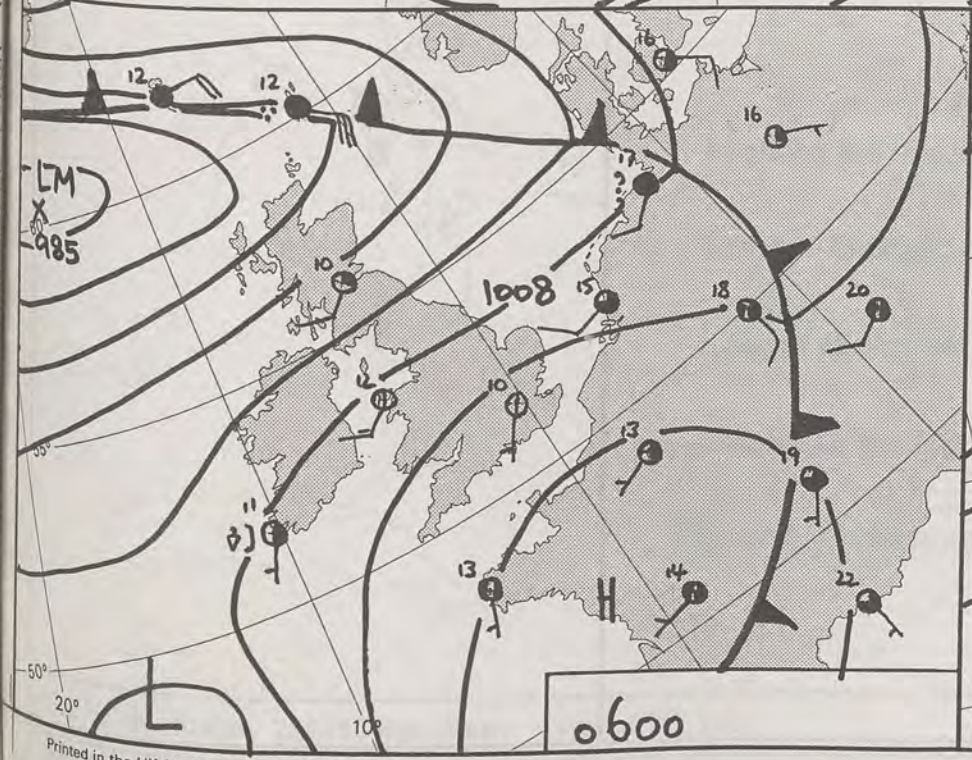 16
12
12
16
17
LM
X
985
10
1008
15
18
20
12
10
13
19
55°
11
13
H
14
22
50°
20°
L
10°
0600
Printed in the